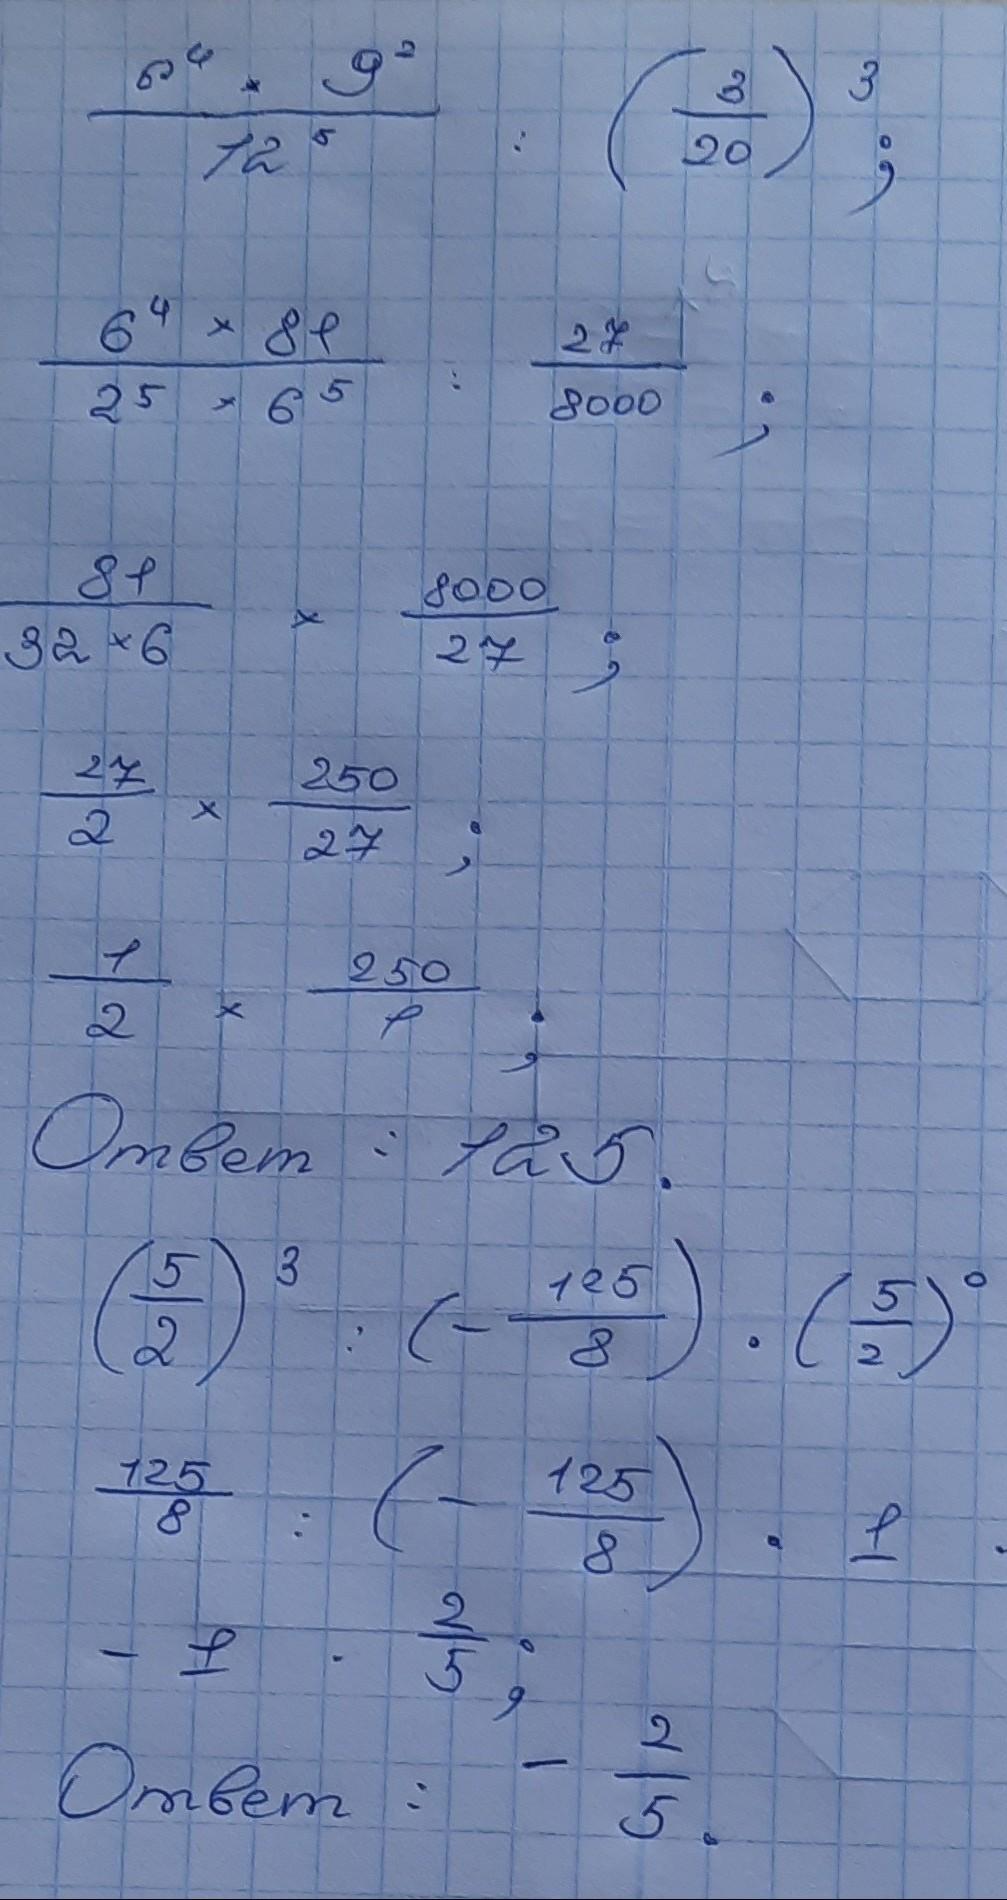 6⁴ × 9² / 12⁵ : (3/20)³ ;
6⁴ × 81 / 2⁵ × 6⁵ : 27/8000 ;
81 / 32 × 6 × 8000/27 ;
27/2 × 250/27 ;
1/2 × 250/1 ;
Ответ : 125.
(5/2)³ : (- 125/8) · (5/2)⁰
125/8 : (- 125/8) · 1 ·
- 1 · 2/5 ;
Ответ : - 2/5.